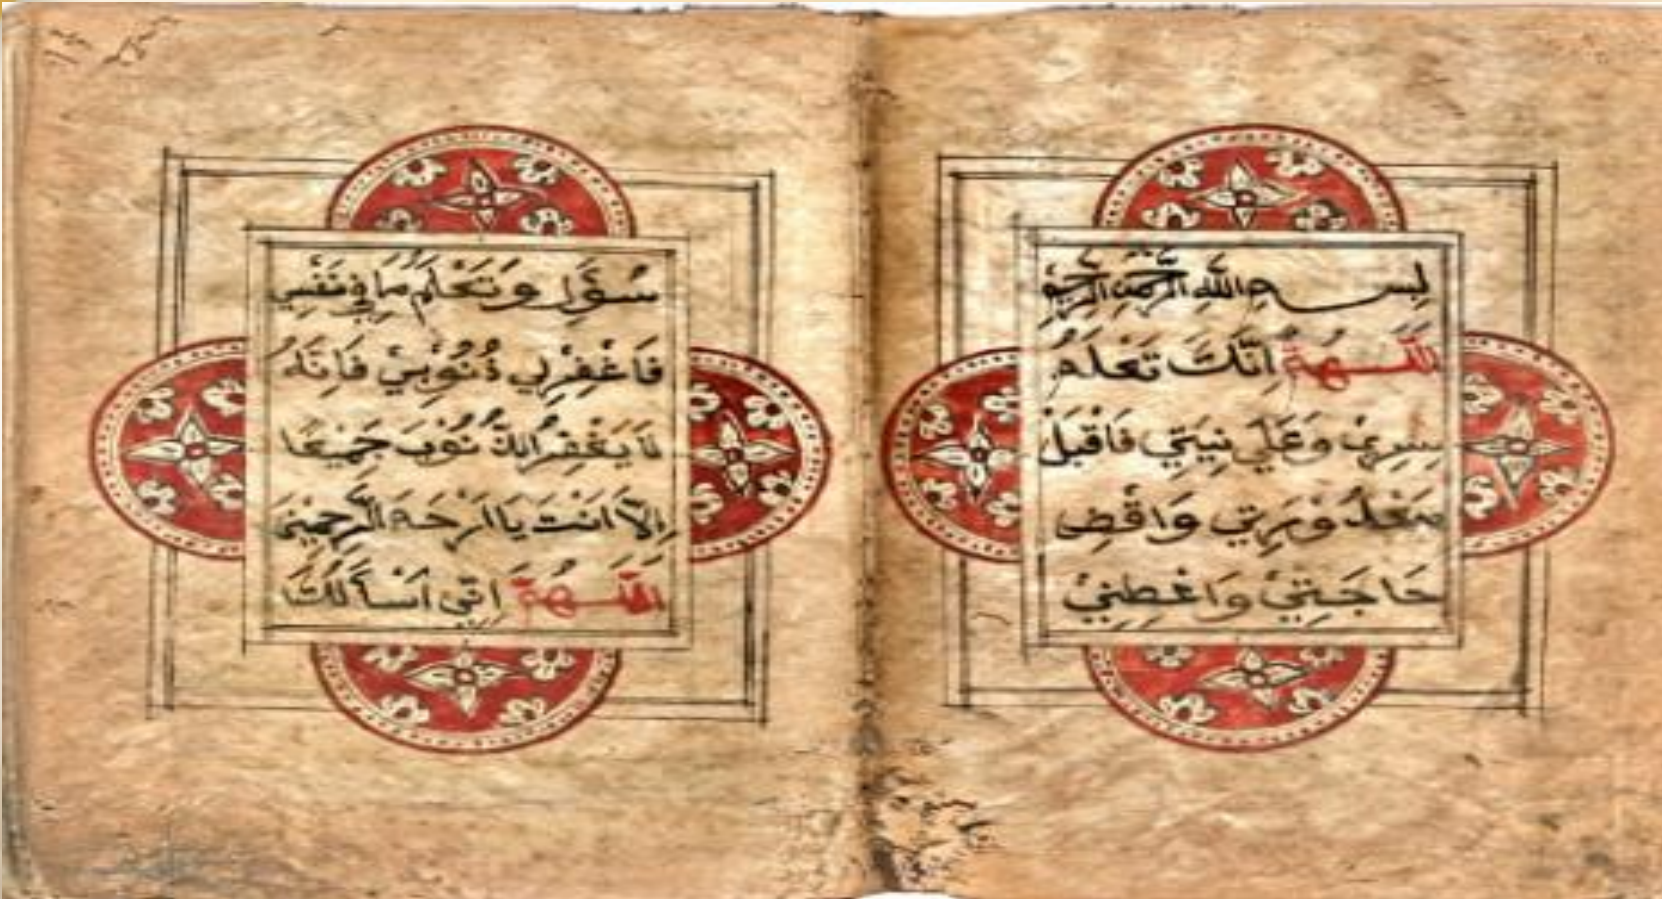 بِسْمِ اللهِ الرَّحْمٰنِ الرَّحِيْمِ
اَللّٰهُمَّ اِنَّكَ تَعْلَمُ
سِرِّيْ وَعَلَي نِيَتِي فَاقْبَلْ
مَعْذُوْرَتِي وَاقْضِ
حَاجَتِيْ وَاعْطِنِيْ
سُؤَلِي وَتَعْلَمُ مَا فِي نَفْسِي
فَاغْفِرْلِي ذُنُوْبِيْ فَاِنَّهُ
لَا يَغْفِرُ الذُّنُوْبَ جَمِيْعًا
اِلَّا اَنْتَ يَا اَرْحَمَ الرَّحِمِيْنَ
اَللّٰهُمَّ اِنِّي اَسْأَلُكَ